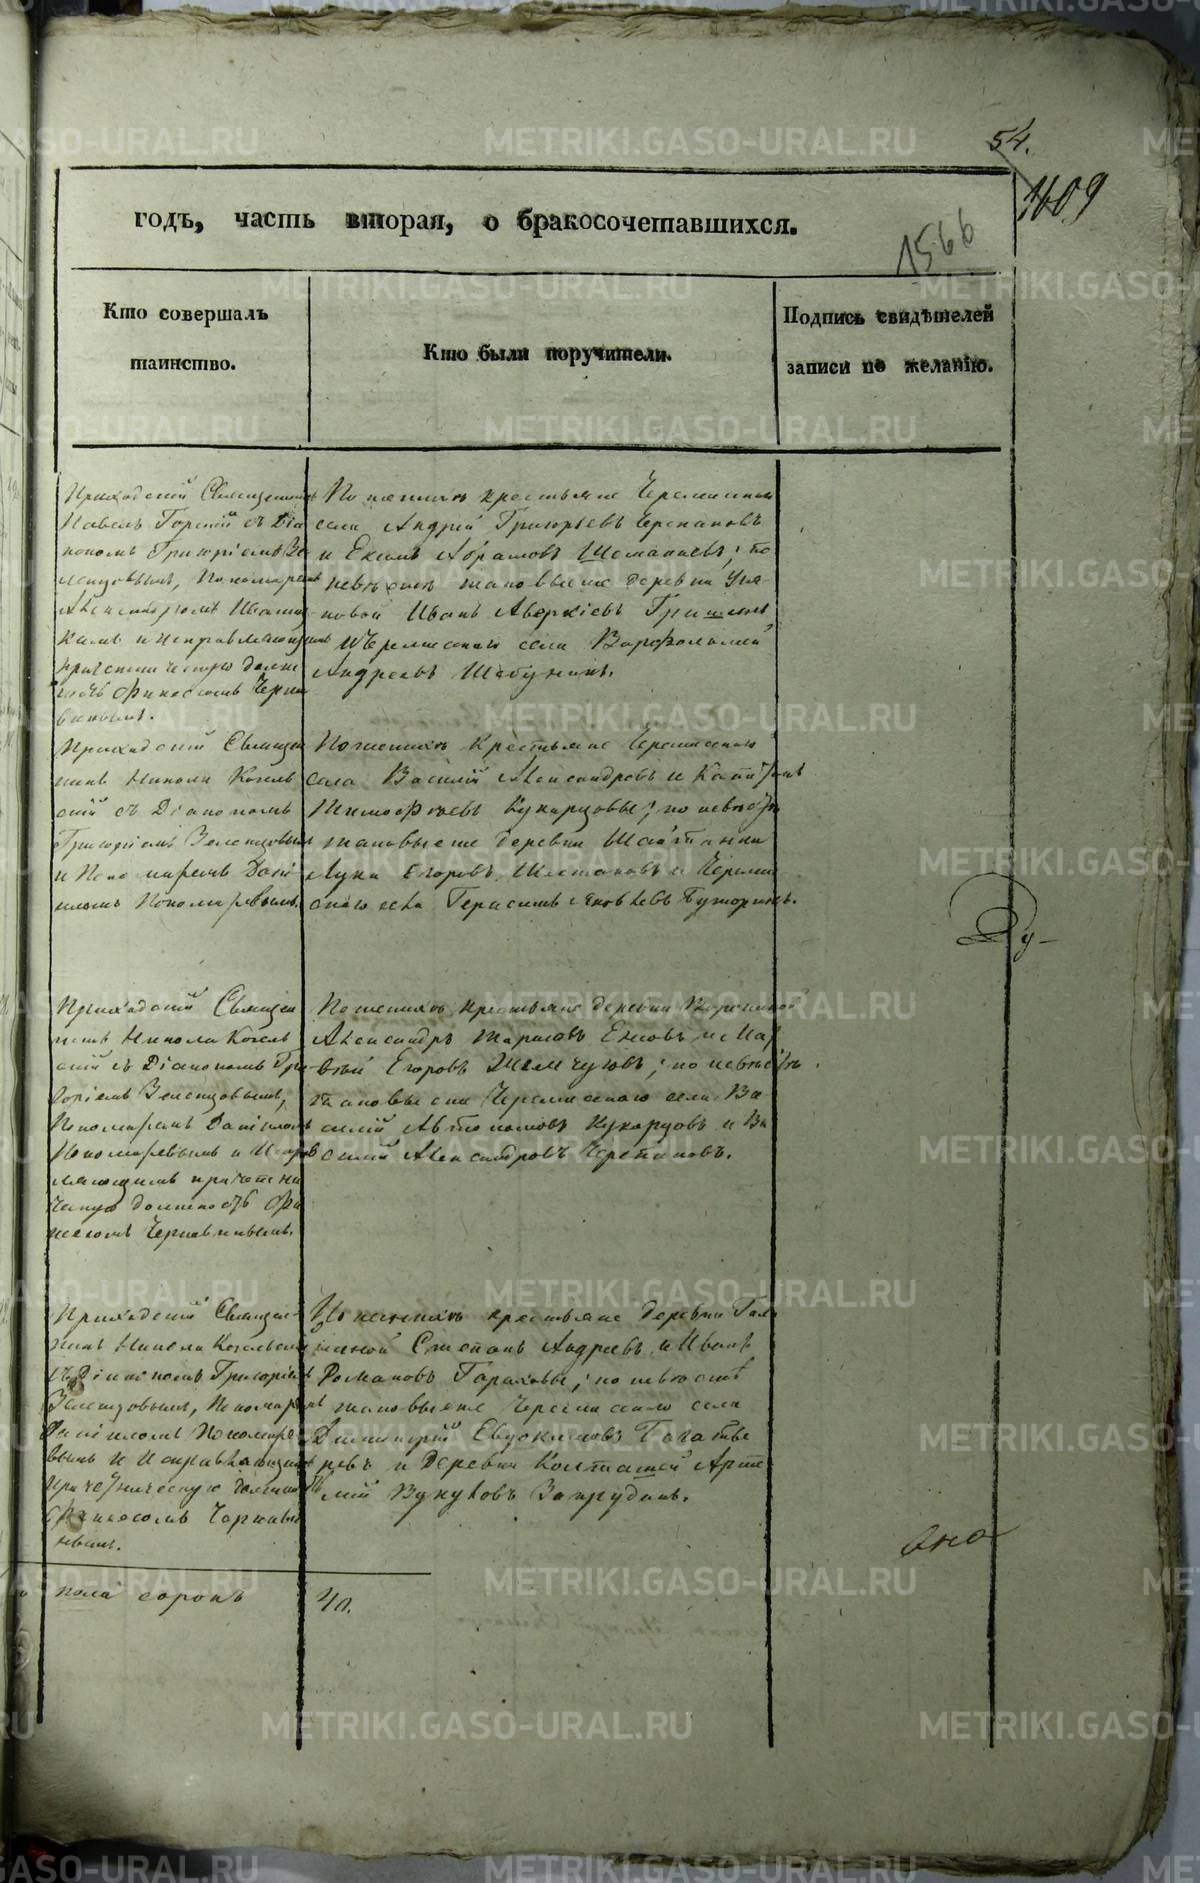 54.
1609
годъ, часть вторая, о бракосочетавшихся.
1566
Кто совершалъ
таинство.
Кто были поручители.
Подпись свидѣтелей
записи по желанію.
Приходскій Священникъ
Павелъ Горскій съ Діа
кономъ Григоріемъ Зе
ленцовымъ, Пономаремъ
Александромъ
и исправляющимъ
причетническую долж
ность
Черна
винымъ.
По женихѣ крестьяне Черемисскаго
села Андрей Григорьевъ Черепановъ
и Екимъ Абрамовъ Шаманаевъ; по
невѣстѣ таковые же деревни
новой Иванъ Аверкіевъ
и Черемисскаго села Варфоломей
Андреевъ Шабунинъ.
Приходскій Священ
никъ Николай Козель
скій съ Діакономъ
Григоріемъ Зеленцовымъ
и Пономаремъ Дані
иломъ Пономаревымъ.
По женихѣ Крестьяне Черемисскаго
села Василій Александровъ и Капитонъ
Тимофѣевъ Кукарцовы; по невѣстѣ
таковые же деревни Шайтанки
Лука Егоровъ Шестаковъ и Черемис
скаго села Герасимъ Яковлевъ Буторинъ.
Ду-
Приходскій Священ
никъ Николай Козель
скій съ Діакономъ Гри
горіемъ Зеленцовымъ,
Пономаремъ Даніиломъ
Пономаревымъ и Исправ
ляющимъ причетни
ческую должность
Чернавинымъ.
По женихѣ крестьяне деревни
Александръ Тарасовъ Ежовъ и
Егоровъ Жемчуговъ; по невѣстѣ
таковые же Черемисскаго села Ва
силій Автономовъ Кукарцовъ и Ва
силій Александровъ Черепановъ.
Приходскій Священ
никъ Николай Козельскій
съ Діакономъ Григоріемъ
Зеленцовымъ, Пономаремъ
Даніиломъ Пономаре
вымъ и Исправляющимъ
Причетническую должность
Чернави
нымъ.
По женихѣ крестьяне деревни
Степанъ Андреевъ и Иванъ
Романовъ; по невѣстѣ
таковые же Черемисскаго села
Димитрій Евдокимовъ Богаты
ревъ и Деревни Колташей Арте
мій Вукуловъ Запрудинъ.
ско
пола сорокъ
40.
METRIKI.GASO-URAL.RU